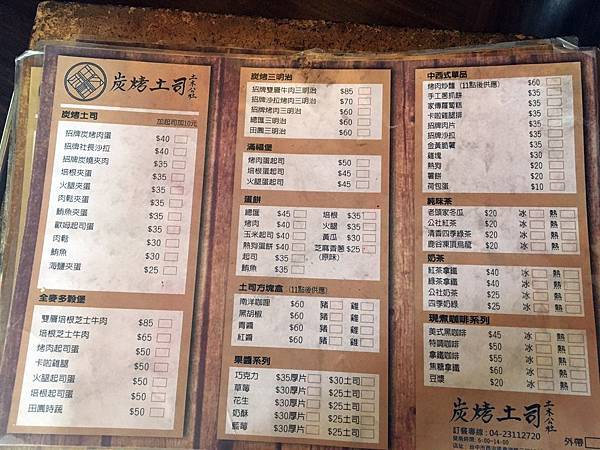 炭烤土司 土木公社
炭烤土司 加起司加10元
招牌炭烤肉蛋 $40
招牌社長沙拉 $40
招牌炭燒夾肉 $40
培根夾蛋 $35
火腿夾蛋 $35
肉鬆夾蛋 $35
鮪魚夾蛋 $35
歐姆起司蛋 $35
肉鬆 $30
鮪魚 $30
海鹽夾蛋 $25
全麥多穀堡
雙層培根芝士牛肉 $85
培根芝士牛肉 $65
烤肉起司蛋 $50
卡啦雞腿 $50
火腿起司蛋 $50
培根起司蛋 $50
田園時蔬 $50
炭烤三明治
招牌雙層牛肉三明治 $85
招牌沙拉烤肉三明治 $70
招牌烤肉三明治 $60
總匯三明治 $60
田園三明治 $60
滿福堡
烤肉蛋起司 $50
培根蛋起司 $45
火腿蛋起司 $45
蛋餅
總匯 $45 培根 $35
烤肉 $40 火腿 $35
玉米起司 $40 黃瓜 $30
熱狗蛋餅 $40 芝麻香蔥 $25
起司 $35 (原味)
鮪魚 $35
土司方塊盒 (11點後供應)
南洋咖哩 $60 豬 雞
黑胡椒 $60 豬 雞
青醬 $60 豬 雞
紅醬 $60 豬 雞
果醬系列
巧克力 $35厚片 $30土司
草莓 $30厚片 $25土司
花生 $30厚片 $25土司
奶酥 $30厚片 $25土司
藍莓 $30厚片 $25土司
中西式單品
烤肉炒麵 (11點後供應) $60
手工蔥抓餅 $35
家傳蘿蔔糕 $35
卡啦雞腿排 $35
招牌肉片 $35
招牌沙拉 $35
金黃脆薯 $35
雞塊 $30
熱狗 $35
薯餅 $20
荷包蛋 $10
純味茶
老頭家冬瓜 $20 冰 熱
公社紅茶 $20 冰 熱
清香四季綠茶 $20 冰 熱
鹿谷凍頂烏龍 $20 冰 熱
奶茶
紅茶拿鐵 $40 冰 熱
綠茶拿鐵 $40 冰 熱
公社奶茶 $25 冰 熱
四季奶綠 $25 冰 熱
現煮咖啡系列
美式黑咖啡 $45 冰 熱
特調咖啡 $50 冰 熱
拿鐵咖啡 $55 冰 熱
焦糖拿鐵 $60 冰 熱
豆漿 $20 冰 熱
炭烤土司 土木公社
訂餐專線：04-23112720 外帶
營業時間：6:00-14:00
店址：台中市西屯區